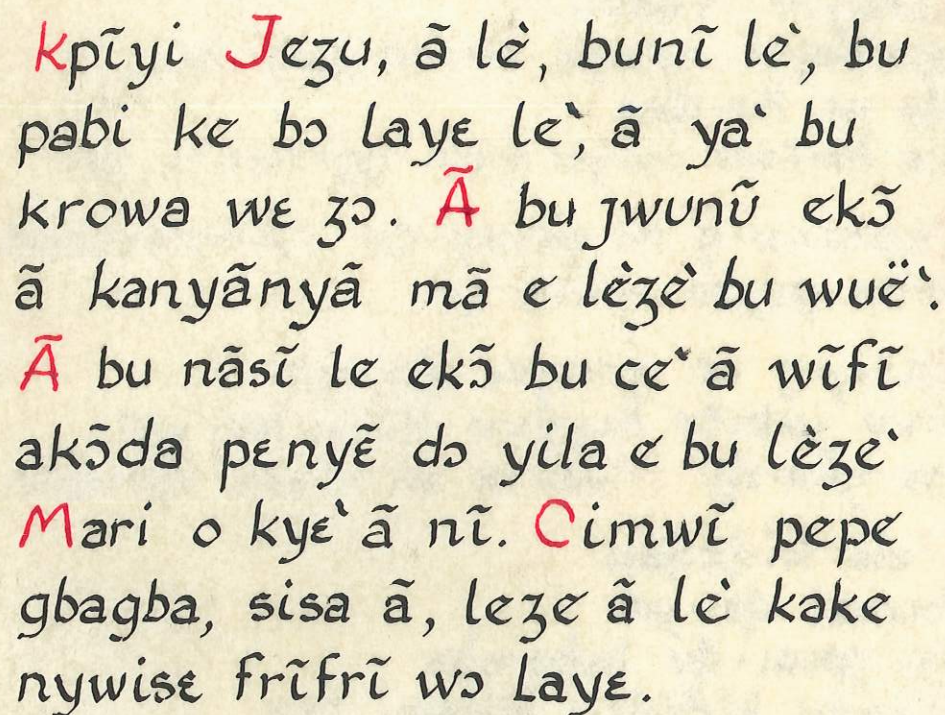 Kpĩyi Jezu, ã lè, bunĩ lè, bu
pabi ke bɔ layɛ lè, ã yà bu
krowa wɛ zɔ. Ã bu ȷwunũ ekɔ̃
ã kanyãnyã mã e lèzè bu wuë̀.
Ã bu nãsĩ le ekɔ̃ bu cè ã wĩfĩ
akɔ̃da pɛnyɛ̃ dɔ yila e bu lèzè
Mari o kyɛ̀ ã nĩ. Cimwĩ pepe
gbagba, sisa ã, leze ã lè kake
nywisɛ frĩfrĩ wɔ Layɛ.